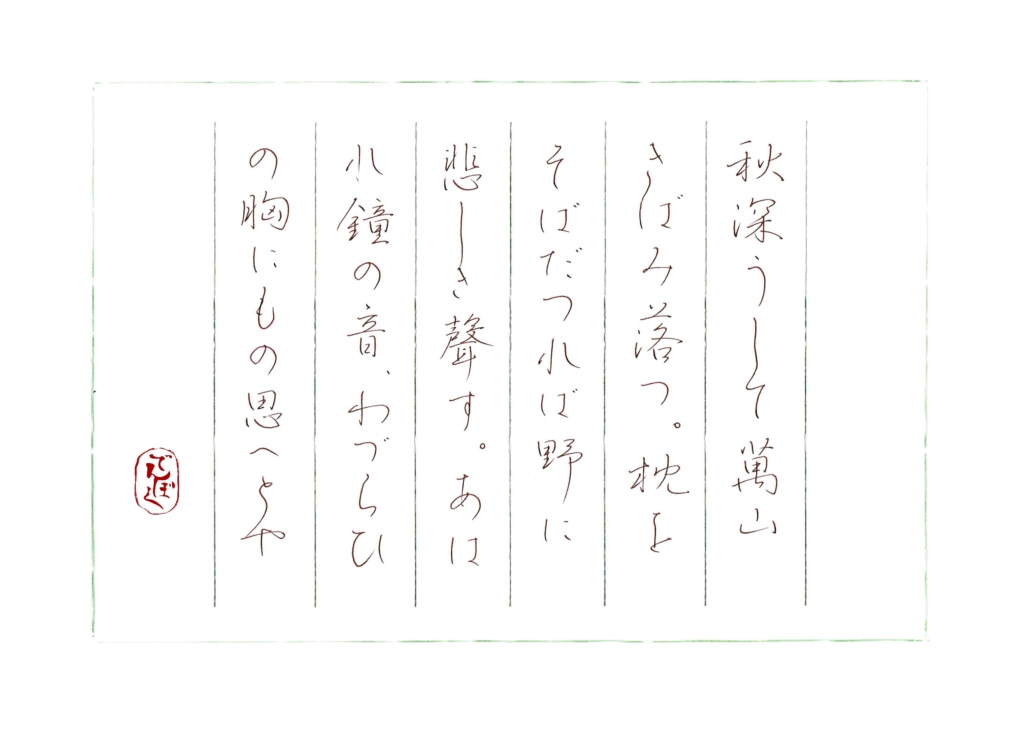 秋深うして萬山
きばみ落つ。枕を
そばだつれば野に
悲しき聲す。あは
れ鐘の音、わづらひ
の胸にもの思へとや
でんぼく